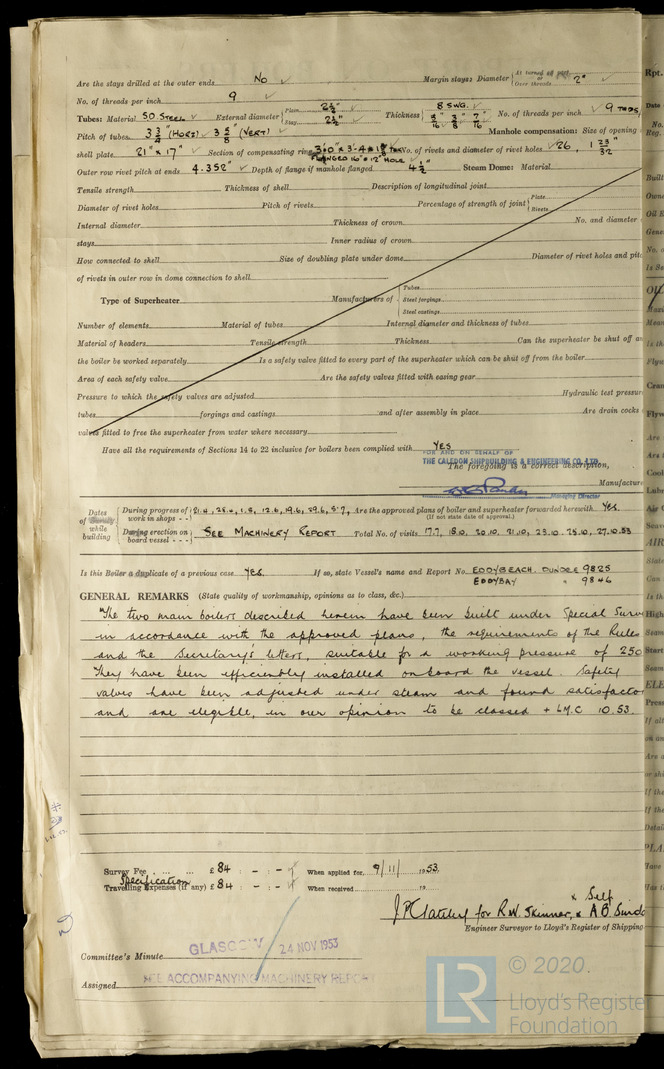 Are the stays drilled at the outer ends No Margin stays: Diameter { At turned off part, Over threads 2"
No. of threads per inch 9
Tubes: Material S.D. Steel External diameter { Plain 2½" Stay 2½" Thickness { 8 SWG. 5/16 3/8 7/16 No. of threads per inch 9 THDS
Pitch of tubes 3¾ (HORZ) 3⅝ (VERT) Manhole compensation: Size of opening
shell plate 21" x 17" Section of compensating ring No. of rivets and diameter of rivet holes 26, 1 23/32
FLANGED 16" x 12" HOLE
Outer row rivet pitch at ends 4.352" Depth of flange if manhole flanged 4½" Steam Dome: Material
Tensile strength Thickness of shell Description of longitudinal joint
Diameter of rivet holes Pitch of rivets Percentage of strength of joint { Plate Rivets
Internal diameter Thickness of crown No. and diameter
stays Inner radius of crown
How connected to shell Size of doubling plate under dome Diameter of rivet holes and
of rivets in outer row in dome connection to shell
Type of Superheater Manufacturers of { Tubes Steel forgings Steel castings
Number of elements Material of tubes Internal diameter and thickness of tubes
Material of headers Tensile strength Thickness Can the superheater be shut off
the boiler be worked separately Is a safety valve fitted to every part of the superheater which can be shut off from the boiler
Area of each safety valve Are the safety valves fitted with easing gear
Pressure to which the safety valves are adjusted Hydraulic test pressure
tubes forgings and castings and after assembly in place Are drain cocks
valves fitted to free the superheater from water where necessary
Have all the requirements of Sections 14 to 22 inclusive for boilers been complied with YES
FOR AND ON BEHALF OF
THE CALEDON SHIPBUILDING & ENGINEERING CO. LTD.
The foregoing is a correct description,
Manufacture
Managing Director
Dates of Survey while building { During progress of work in shops - - 21.4, 28.4, 1.5, 12.6, 19.6, 29.6, 3.7, Are the approved plans of boiler and superheater forwarded herewith Yes.
(If not state date of approval.)
During erection on board vessel - - - SEE MACHINERY REPORT Total No. of visits 17.7, 18.10. 20.10. 21.10, 23.10. 25.10, 27.10.53
Is this Boiler a duplicate of a previous case Yes. If so, state Vessel's name and Report No. EDDYBEACH. DUNDEE 9825
EDDYBAY " 9846
GENERAL REMARKS (State quality of workmanship, opinions as to class, &c.)
"The two main boilers described herein have been built under Special Surv
in accordance with the approved plans, the requirements of the Rules
and the Secretary's letters, suitable for a working pressure of 250
They have been efficiently installed on board the vessel. Safety
valves have been adjusted under steam and found satisfactor
and are eligible, in our opinion to be classed + LMC 10.53.
Survey Fee £84 : - : - When applied for, 9/11/1953
Specification
Travelling Expenses (if any) £84 : - : - When received 19
for R.W. Skinner, & Self
& A B
Engineer Surveyor to Lloyd's Register of Shipping
Committee's Minute GLASGOW 24 NOV 1953
Assigned SEE ACCOMPANYING MACHINERY REPORT
LR © 2020.
Lloyd's Register
Foundation